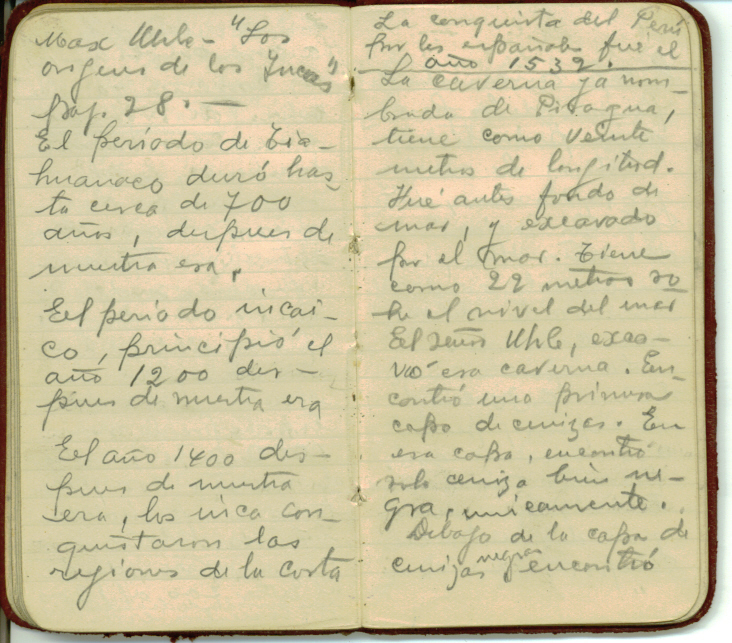 Max Uhle - "Los
origenes de los Incas"
pag. 28. —
El período de Tia-
huanaco duró has-
ta cerca de 700
años, despues de
nuestra era.
Eel período incai-
co, principió el
año 1200 des-
pues de nuestra era
Eel año 1400 des-
pues de nuestra
era, los inca con-
quistaron las
regiones de la costa
La conquista del Perú
por los españoles fue el
año 1532.
La caverna ya nom-
brada de Pisagua,
tiene como veinte
metros de longitud.
Fué antes fondo de
mar, y excavado
por el mar. Tiene
como 22 metros so
bre el nivel del mar
Eel señor Uhle, exca-
vó esa caverna. En-
contró una primera
capa de cenizas. En
esa capa, encontró
solo ceniza bien ne-
gra, unicamente.
Debajo de la capa de
cenizas negras encontró